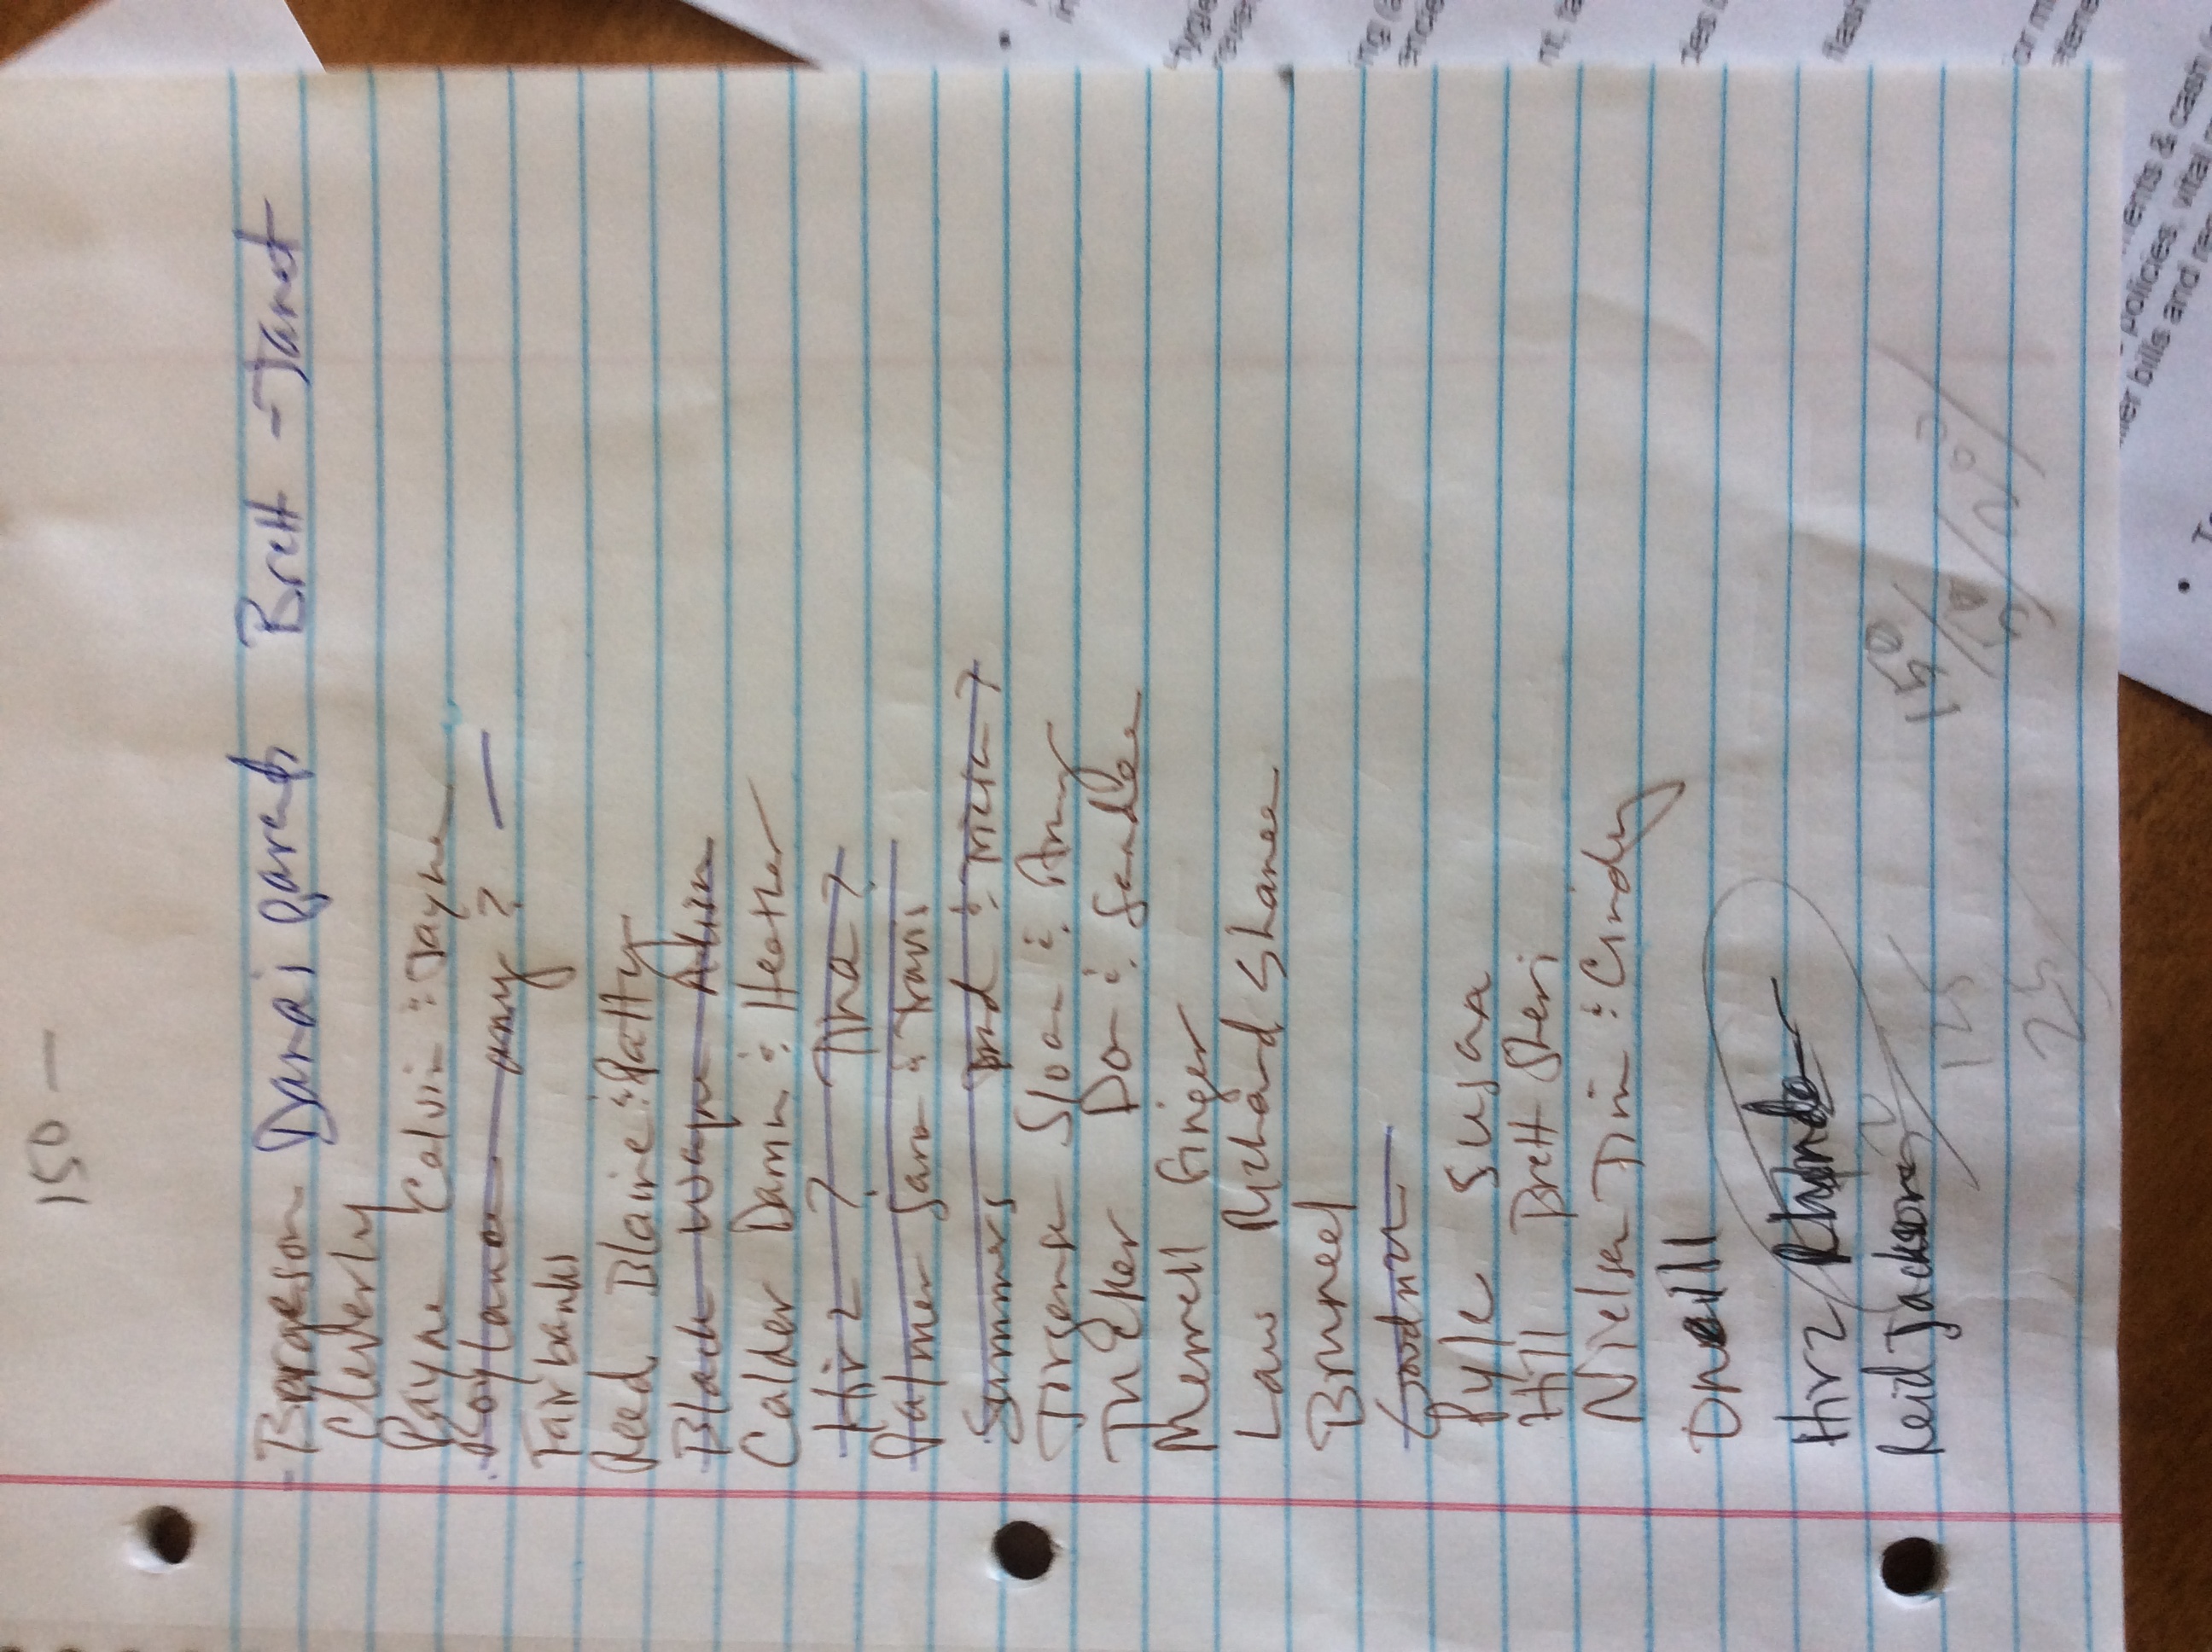 150 —
Bergeson Dana's parents Brett - Janet
Cleverly
Payne Calvin & Jayne
Roylance amy ? —
Fairbanks
Reed Blaine & Patty
Black Wayne
Calder Darrin & Heather
Hirz ? Tina ?
Palmer Sara & Travis
Summers & Tricia ?
Jorgensen Sloan & Amy
Tucker Don & Sandee
Merrell Ginger
Law Richard Shanee
Bruneel
Goodrich
Pyle Susan
Hill Brett Sheri
Nielsen Tim & Cindy
Oneill
Hirz Rhonda
Reid Jackson
125
150
50
200
25
ments & cash
policies, vital
bills and